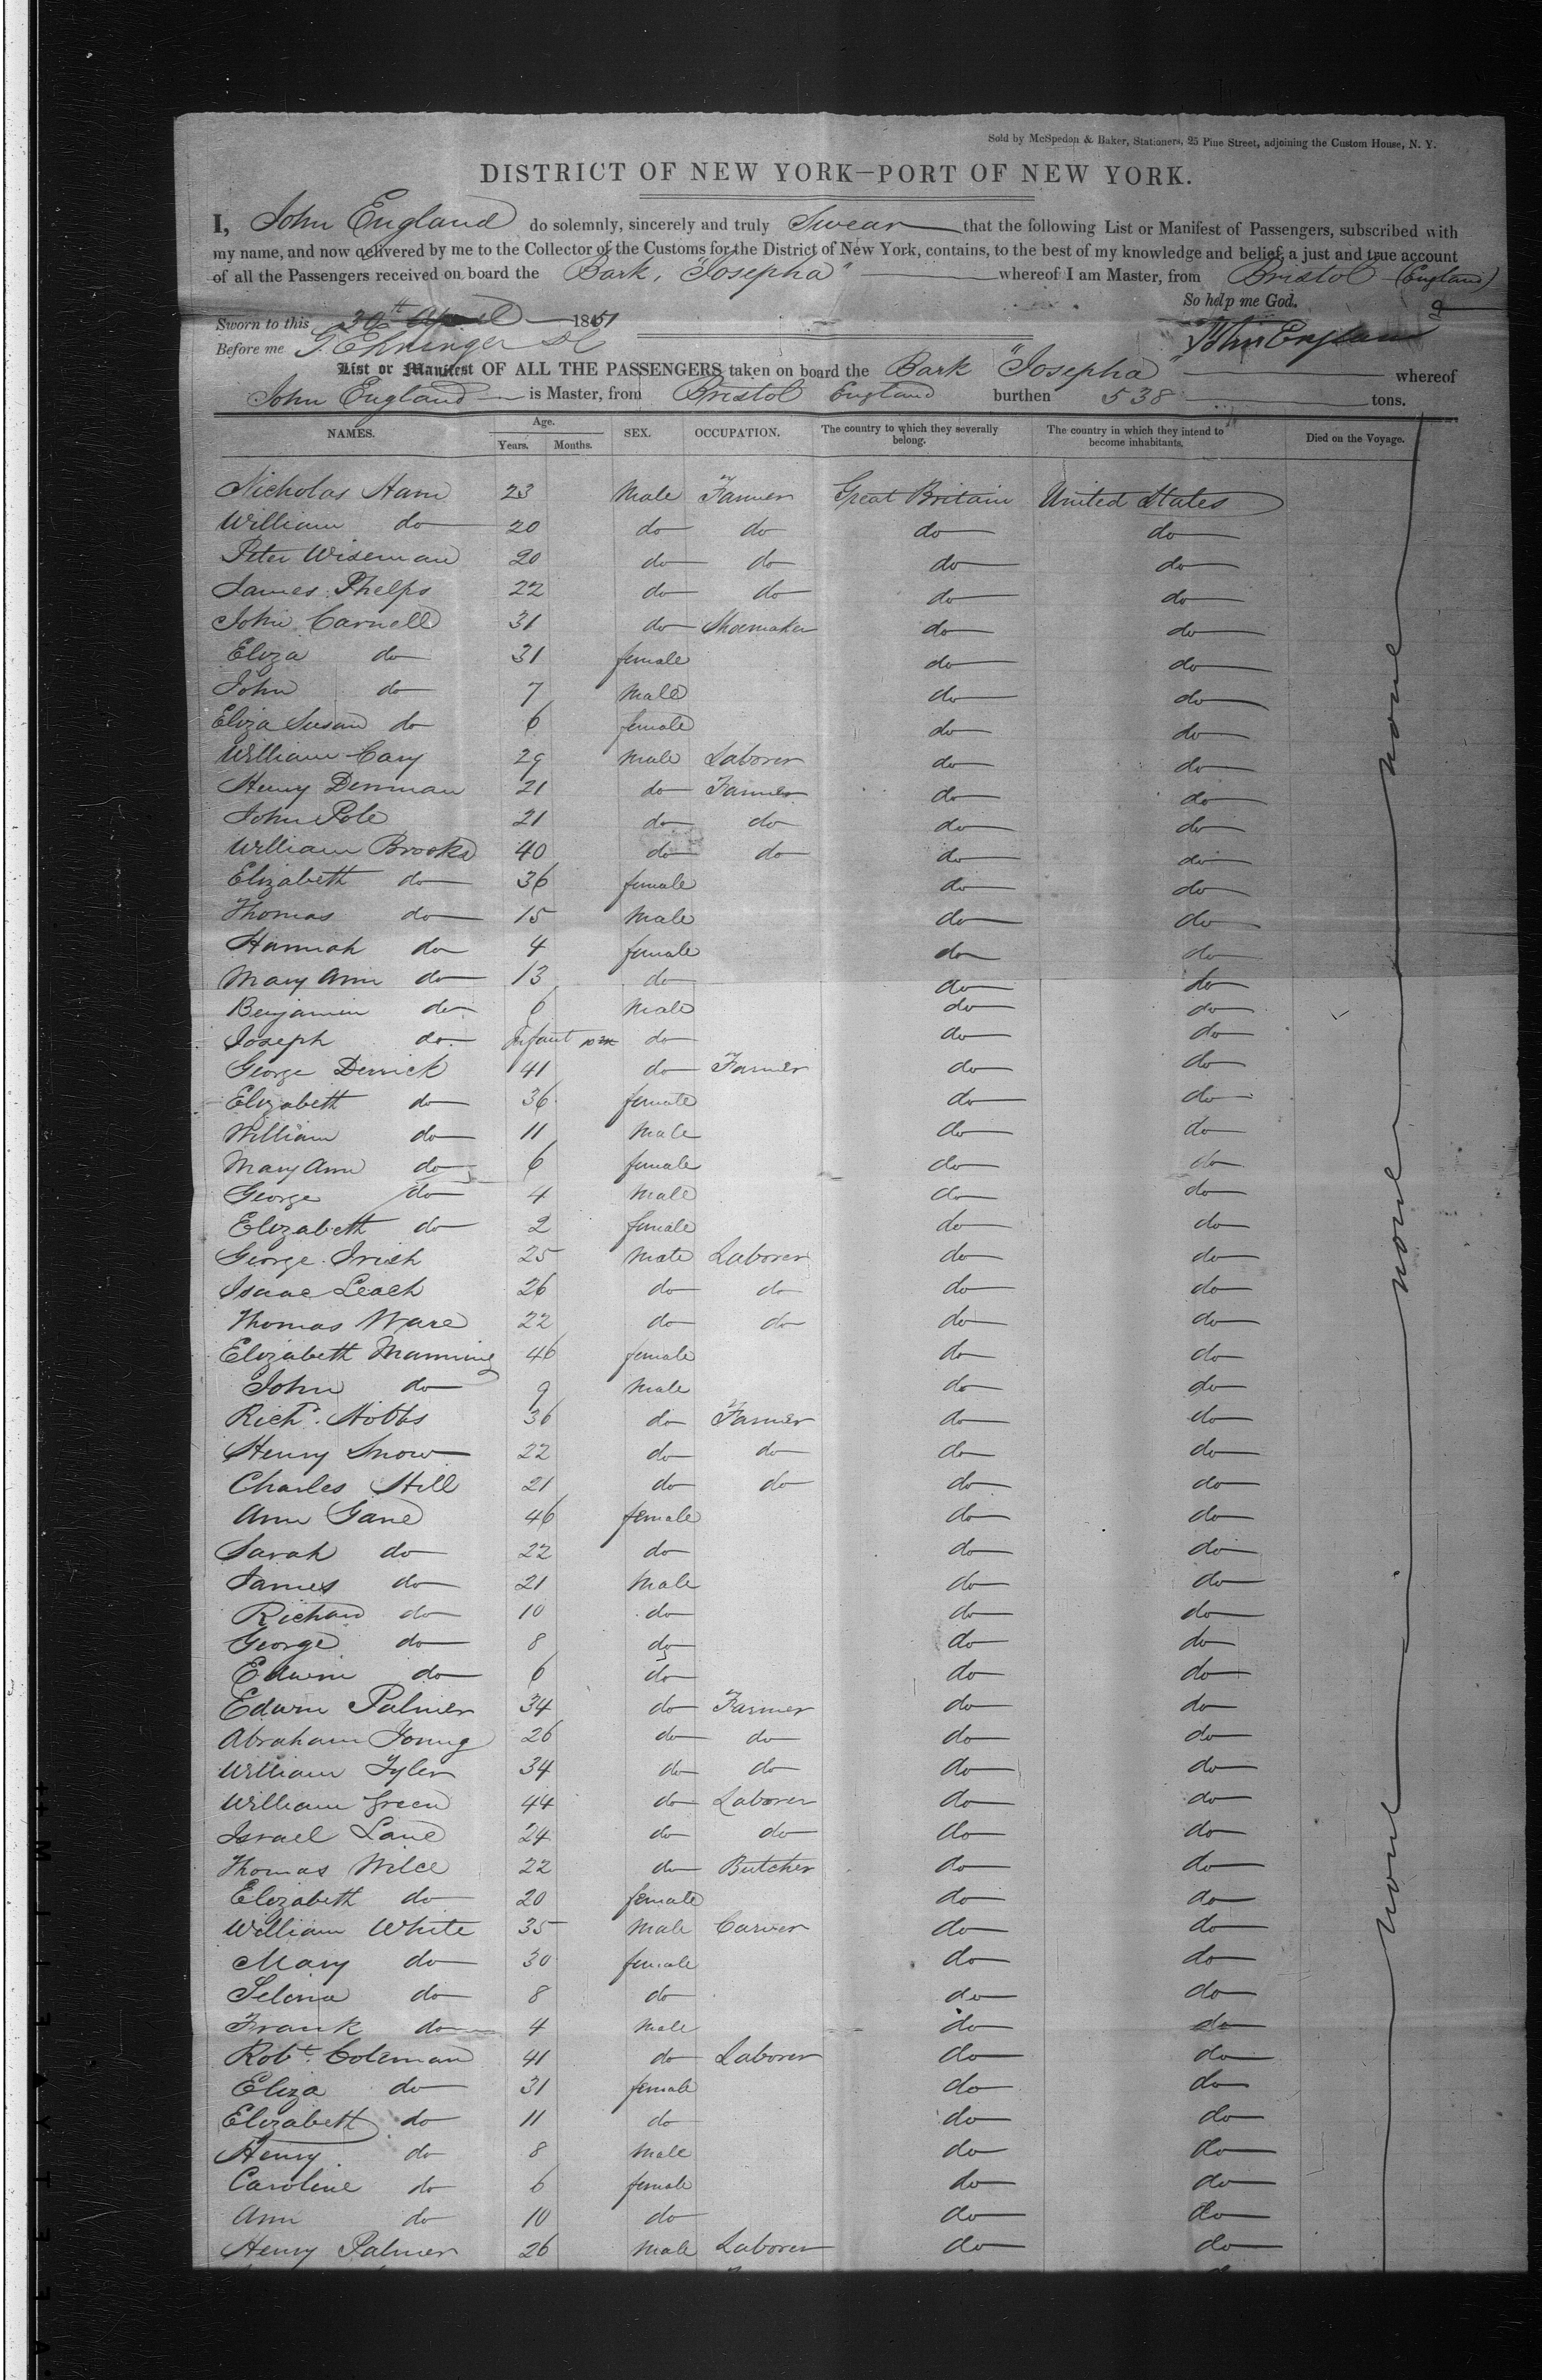 Sold by McSpedon & Baker, Stationers, 25 Pine Street, adjoining the Custom House, N. Y.
DISTRICT OF NEW YORK—PORT OF NEW YORK.
I, John England do solemnly, sincerely and truly Swear that the following List or Manifest of Passengers, subscribed with
my name, and now delivered by me to the Collector of the Customs for the District of New York, contains, to the best of my knowledge and belief, a just and true account
of all the Passengers received on board the Bark, "Josepha" whereof I am Master, from Bristol (England)
So help me God.
Sworn to this 30th April 1851
John England
Before me G. Ehninger
List or Manifest OF ALL THE PASSENGERS taken on board the Bark "Josepha" whereof
John England is Master, from Bristol England burthen 538 tons.
NAMES. Age. Years. Months. SEX. OCCUPATION. The country to which they severally belong. The country in which they intend to become inhabitants. Died on the Voyage.
Nicholas Ham 23 Male Farmer Great Britain United States
William do 20 do do do do
Peter Wiseman 20 do do do do
James Phelps 22 do do do do
John Carnell 31 do Shoemaker do do
Eliza do 31 female do do
John do 7 Male do do
Eliza Susan do 6 female do do
William Cary 29 Male Laborer do do
Henry Denman 21 do Farmer do do
John Pole 21 do do do do
William Brooks 40 do do do do
Elizabeth do 36 female do do
Thomas do 15 Male do do
Hannah do 4 female do do
Mary Ann do 13 do do do
Benjamin do 6 Male do do
Joseph do Infant 10 m do do do
George Derrick 41 do Farmer do do
Elizabeth do 36 female do do
William do 11 Male do do
Mary Ann do 6 female do do
George do 4 Male do do
Elizabeth do 2 female do do
George Irish 25 Male Laborer do do
Isaac Leach 26 do do do do
Thomas Ware 22 do do do do
Elizabeth Manning 46 female do do
John do 9 Male do do
Richd. Hobbs 36 do Farmer do do
Henry Snow 22 do do do do
Charles Hill 21 do do do do
Ann Gane 46 female do do
Sarah do 22 do do do
James do 21 Male do do
Richard do 10 do do do
George do 8 do do do
Edwin do 6 do do do
Edwin Palmer 34 do Farmer do do
Abraham Young 26 do do do do
William Tyler 34 do do do do
William Green 44 do Laborer do do
Israel Lane 24 do do do do
Thomas Wilce 22 do Butcher do do
Elizabeth do 20 female do do
William White 35 Male Carver do do
Mary do 30 female do do
Selina do 8 do do do
Frank do 4 Male do do
Robt. Coleman 41 do Laborer do do
Eliza do 31 female do do
Elizabeth do 11 do do do
Henry do 8 Male do do
Caroline do 6 female do do
Ann do 10 do do do
Henry Palmer 26 Male Laborer do do
none none none